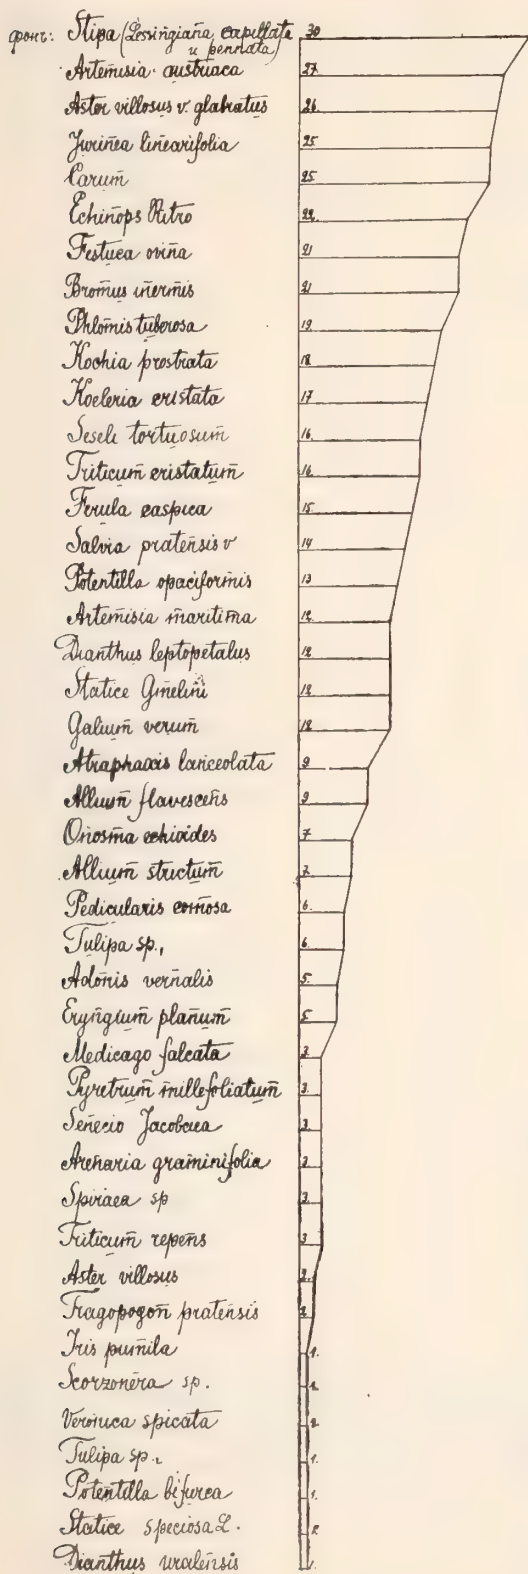 фонъ: Stipa (Lessingiana, capillata 30
и pennata)
Artemisia austriaca 27
Aster villosus v. glabratus 26
Jurinea linearifolia 25
Carum 25
Echinops Ritro 22
Festuca ovina 21
Bromus inermis 21
Phlomis tuberosa 19
Kochia prostrata 18
Koeleria cristata 17
Seseli tortuosum 16
Triticum cristatum 16
Ferula caspica 15
Salvia pratensis v 14
Potentilla opaciformis 13
Artemisia maritima 12
Dianthus leptopetalus 12
Statice Gmelini 12
Galium verum 12
Atraphaxis lanceolata 9
Allium flavescens 9
Onosma echioides 7
Allium strictum 7
Pedicularis comosa 6
Tulipa sp., 6
Adonis vernalis 5
Eryngium planum 5
Medicago falcata 3
Pyretrum millefoliatum 3
Senecio Jacobaea 3
Arenaria graminifolia 3
Spiraea sp 3
Triticum repens 3
Aster villosus 2
Tragopogon pratensis 2
Iris pumila 1
Scorzonera sp. 1
Veronica spicata 1
Tulipa sp. 1
Potentilla bifurca 1
Statice speciosa L. 1
Dianthus uralensis 1